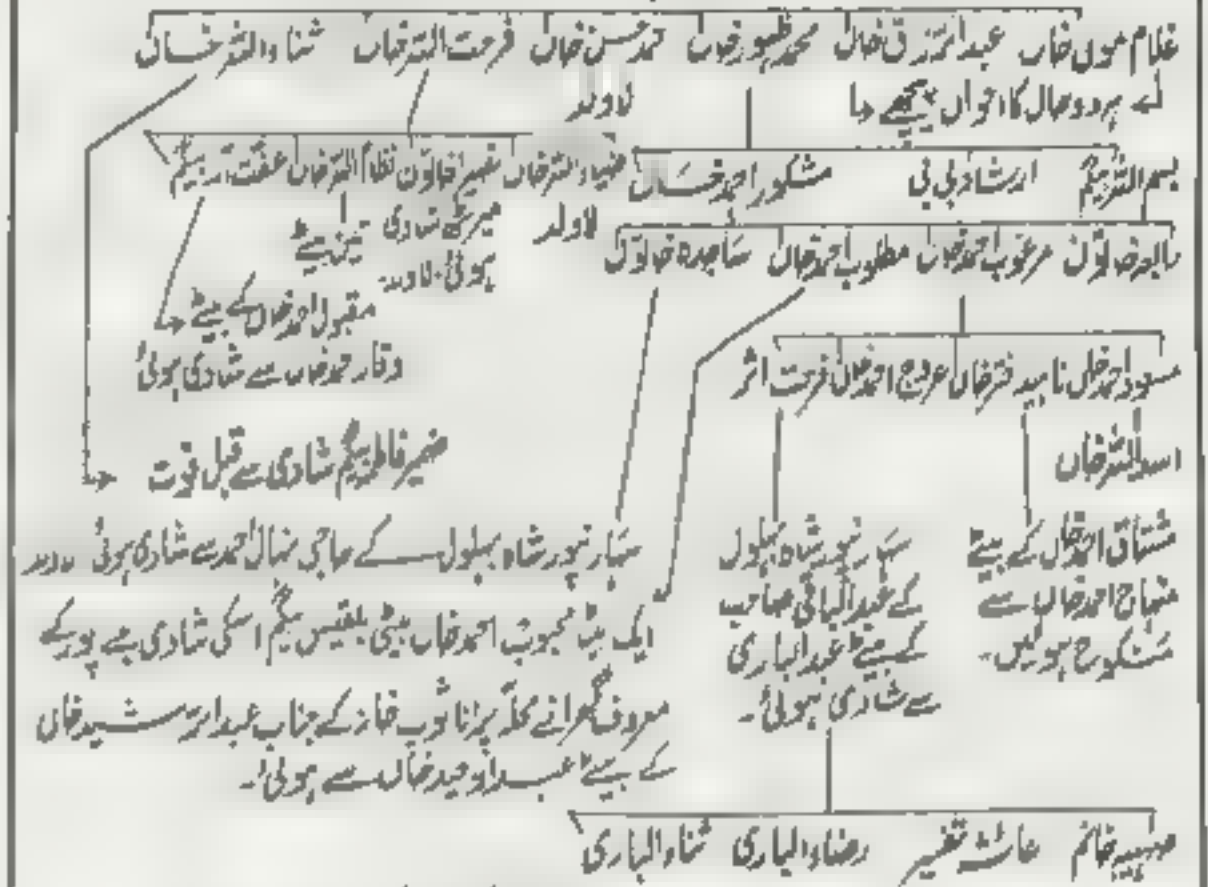 غلام موسیٰ خاں عبدالرزاق خاں محمد ظہور خاں محمد حسن خاں فرحت اللہ خاں ثناء اللہ خاں
لے ہر دو حال کا احوال پیچھے
لاولد
بسم اللہ بیگم ارشاد بی بی مشکور احمد خاں
ضیاء اللہ خاں خاتون نظام اللہ خاں عفت آرا بیگم
لاولد
میرٹھ شادی ہوئی۔ لاولد
تین بیٹے
رابعہ خاتون مرغوب احمد خاں مطلوب احمد خاں ساجدہ خاتون
مقبول احمد خاں کے بیٹے
وقار احمد خاں سے شادی ہوئی
مسعود احمد خاں ناہید عروج احمد خاں فرحت اثر
اسد اللہ خاں
ضمیر فاطمہ بیگم شادی سے قبل فوت
مشتاق احمد خاں کے بیٹے
منہاج احمد خاں سے
منکوح ہوئیں۔
سہارنپور شاہ بہلول
کے عبدالباقی صاحب
کے بیٹے عبدالباری
سے شادی ہوئی۔
سہارنپور شاہ بہلول کے حاجی نہال احمد سے شادی ہوئی لاولد
ایک بیٹا محبوب احمد خاں بیٹی بلقیس بیگم اسکی شادی جے پور کے
معروف گھرانے محلہ پرانا توپ خانہ کے جناب عبدالرشید خاں
کے بیٹے عبدالوحید خاں سے ہوئی۔
صبیحہ خانم عائشہ رضاء الباری ثناء الباری